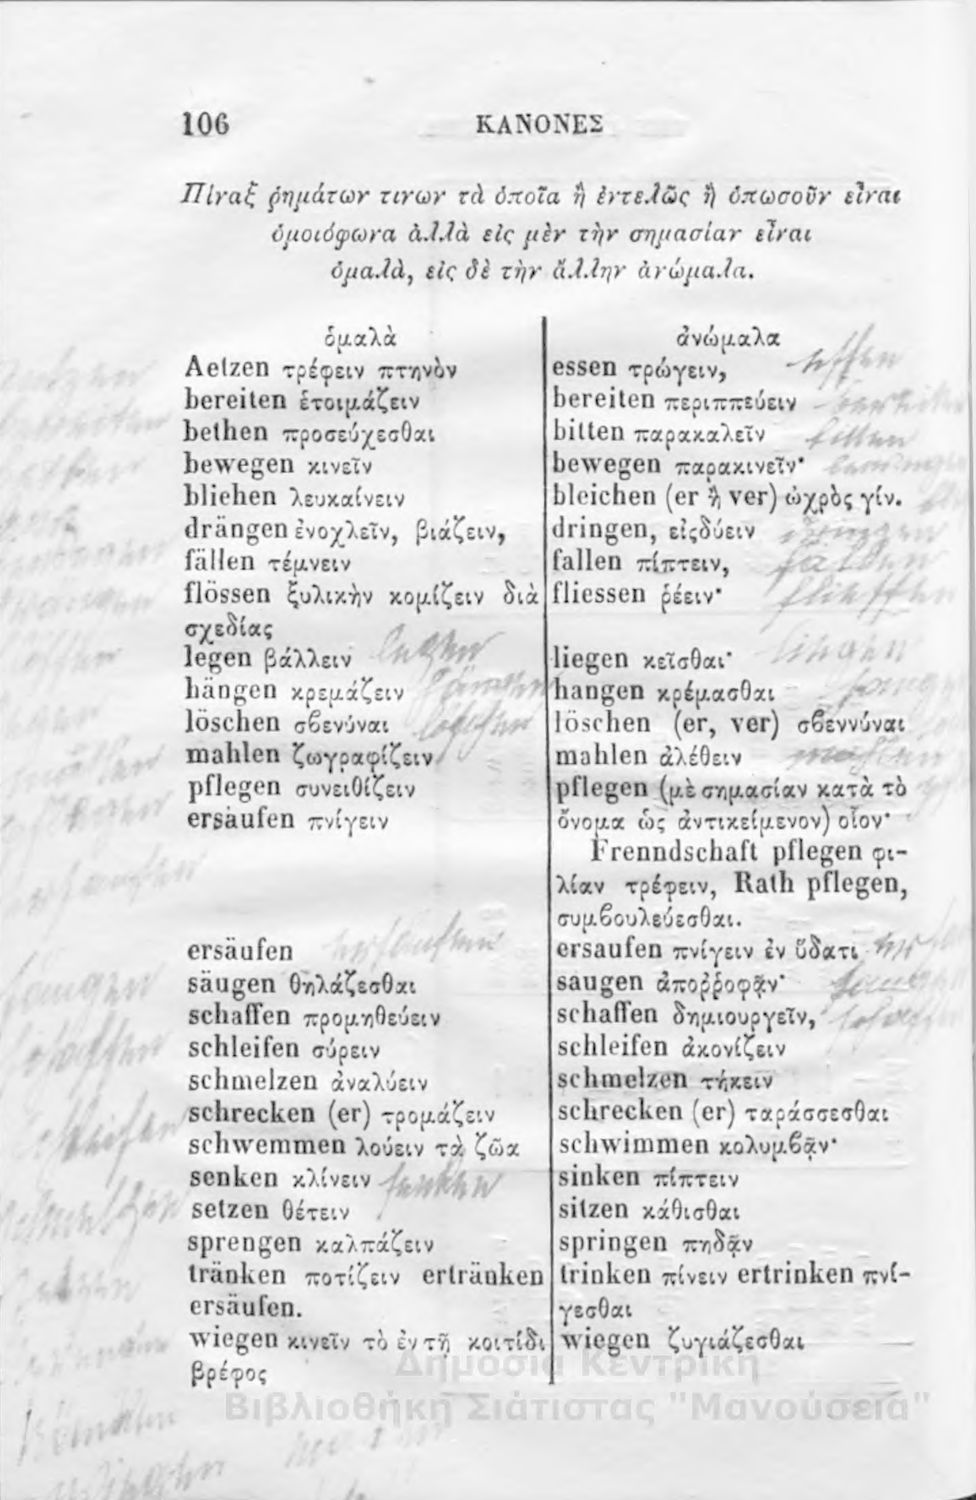 106 ΚΑΝΟΝΕΣ
Πίναξ ῥημάτων τινων τὰ ὁποῖα ἢ ἐντελῶς ἢ ὁπωσοῦν εἶναι
ὁμοιόφωνα ἀλλὰ εἰς μὲν τὴν σημασίαν εἶναι
ὁμαλὰ, εἰς δὲ τὴν ἄλλην ἀνώμαλα.
ὁμαλὰ
Aetzen τρέφειν πτηνὸν
bereiten ἑτοιμάζειν
bethen προσεύχεσθαι
bewegen κινεῖν
bliehen λευκαίνειν
drängen ἐνοχλεῖν, βιάζειν,
fällen τέμνειν
flössen ξυλικὴν κομίζειν διὰ
σχεδίας
legen βάλλειν
hängen κρεμάζειν
löschen σβενύναι
mahlen ζωγραφίζειν
pflegen συνειθίζειν
ersäufen πνίγειν
ersäufen
säugen θηλάζεσθαι
schaffen προμηθεύειν
schleifen σύρειν
schmelzen ἀναλύειν
schrecken (er) τρομάζειν
schwemmen λούειν τὰ ζῶα
senken κλίνειν
setzen θέτειν
sprengen καλπάζειν
tränken ποτίζειν ertränken
ersäufen.
wiegen κινεῖν τὸ ἐν τῇ κοιτίδι
βρέφος
ἀνώμαλα
essen τρώγειν,
bereiten περιππεύειν
bitten παρακαλεῖν
bewegen παρακινεῖν·
bleichen (er ἢ ver) ὠχρὸς γίν.
dringen, εἰςδύειν
fallen πίπτειν,
fliessen ῥέειν·
liegen κεῖσθαι·
hangen κρέμασθαι
löschen (er, ver) σβεννύναι
mahlen ἀλέθειν
pflegen (μὲ σημασίαν κατὰ τὸ
ὄνομα ὡς ἀντικείμενον) οἷον·
Frenndschaft pflegen φι-
λίαν τρέφειν, Rath pflegen,
συμβουλεύεσθαι.
ersaufen πνίγειν ἐν ὕδατι
saugen ἀποῤῥοφᾷν·
schaffen δημιουργεῖν,
schleifen ἀκονίζειν
schmelzen τήκειν
schrecken (er) ταράσσεσθαι
schwimmen κολυμβᾷν·
sinken πίπτειν
sitzen κάθισθαι
springen πηδᾷν
trinken πίνειν ertrinken πνί-
γεσθαι
wiegen ζυγιάζεσθαι
Δημόσια Κεντρική
Βιβλιοθήκη Σιάτιστας "Μανούσεια"